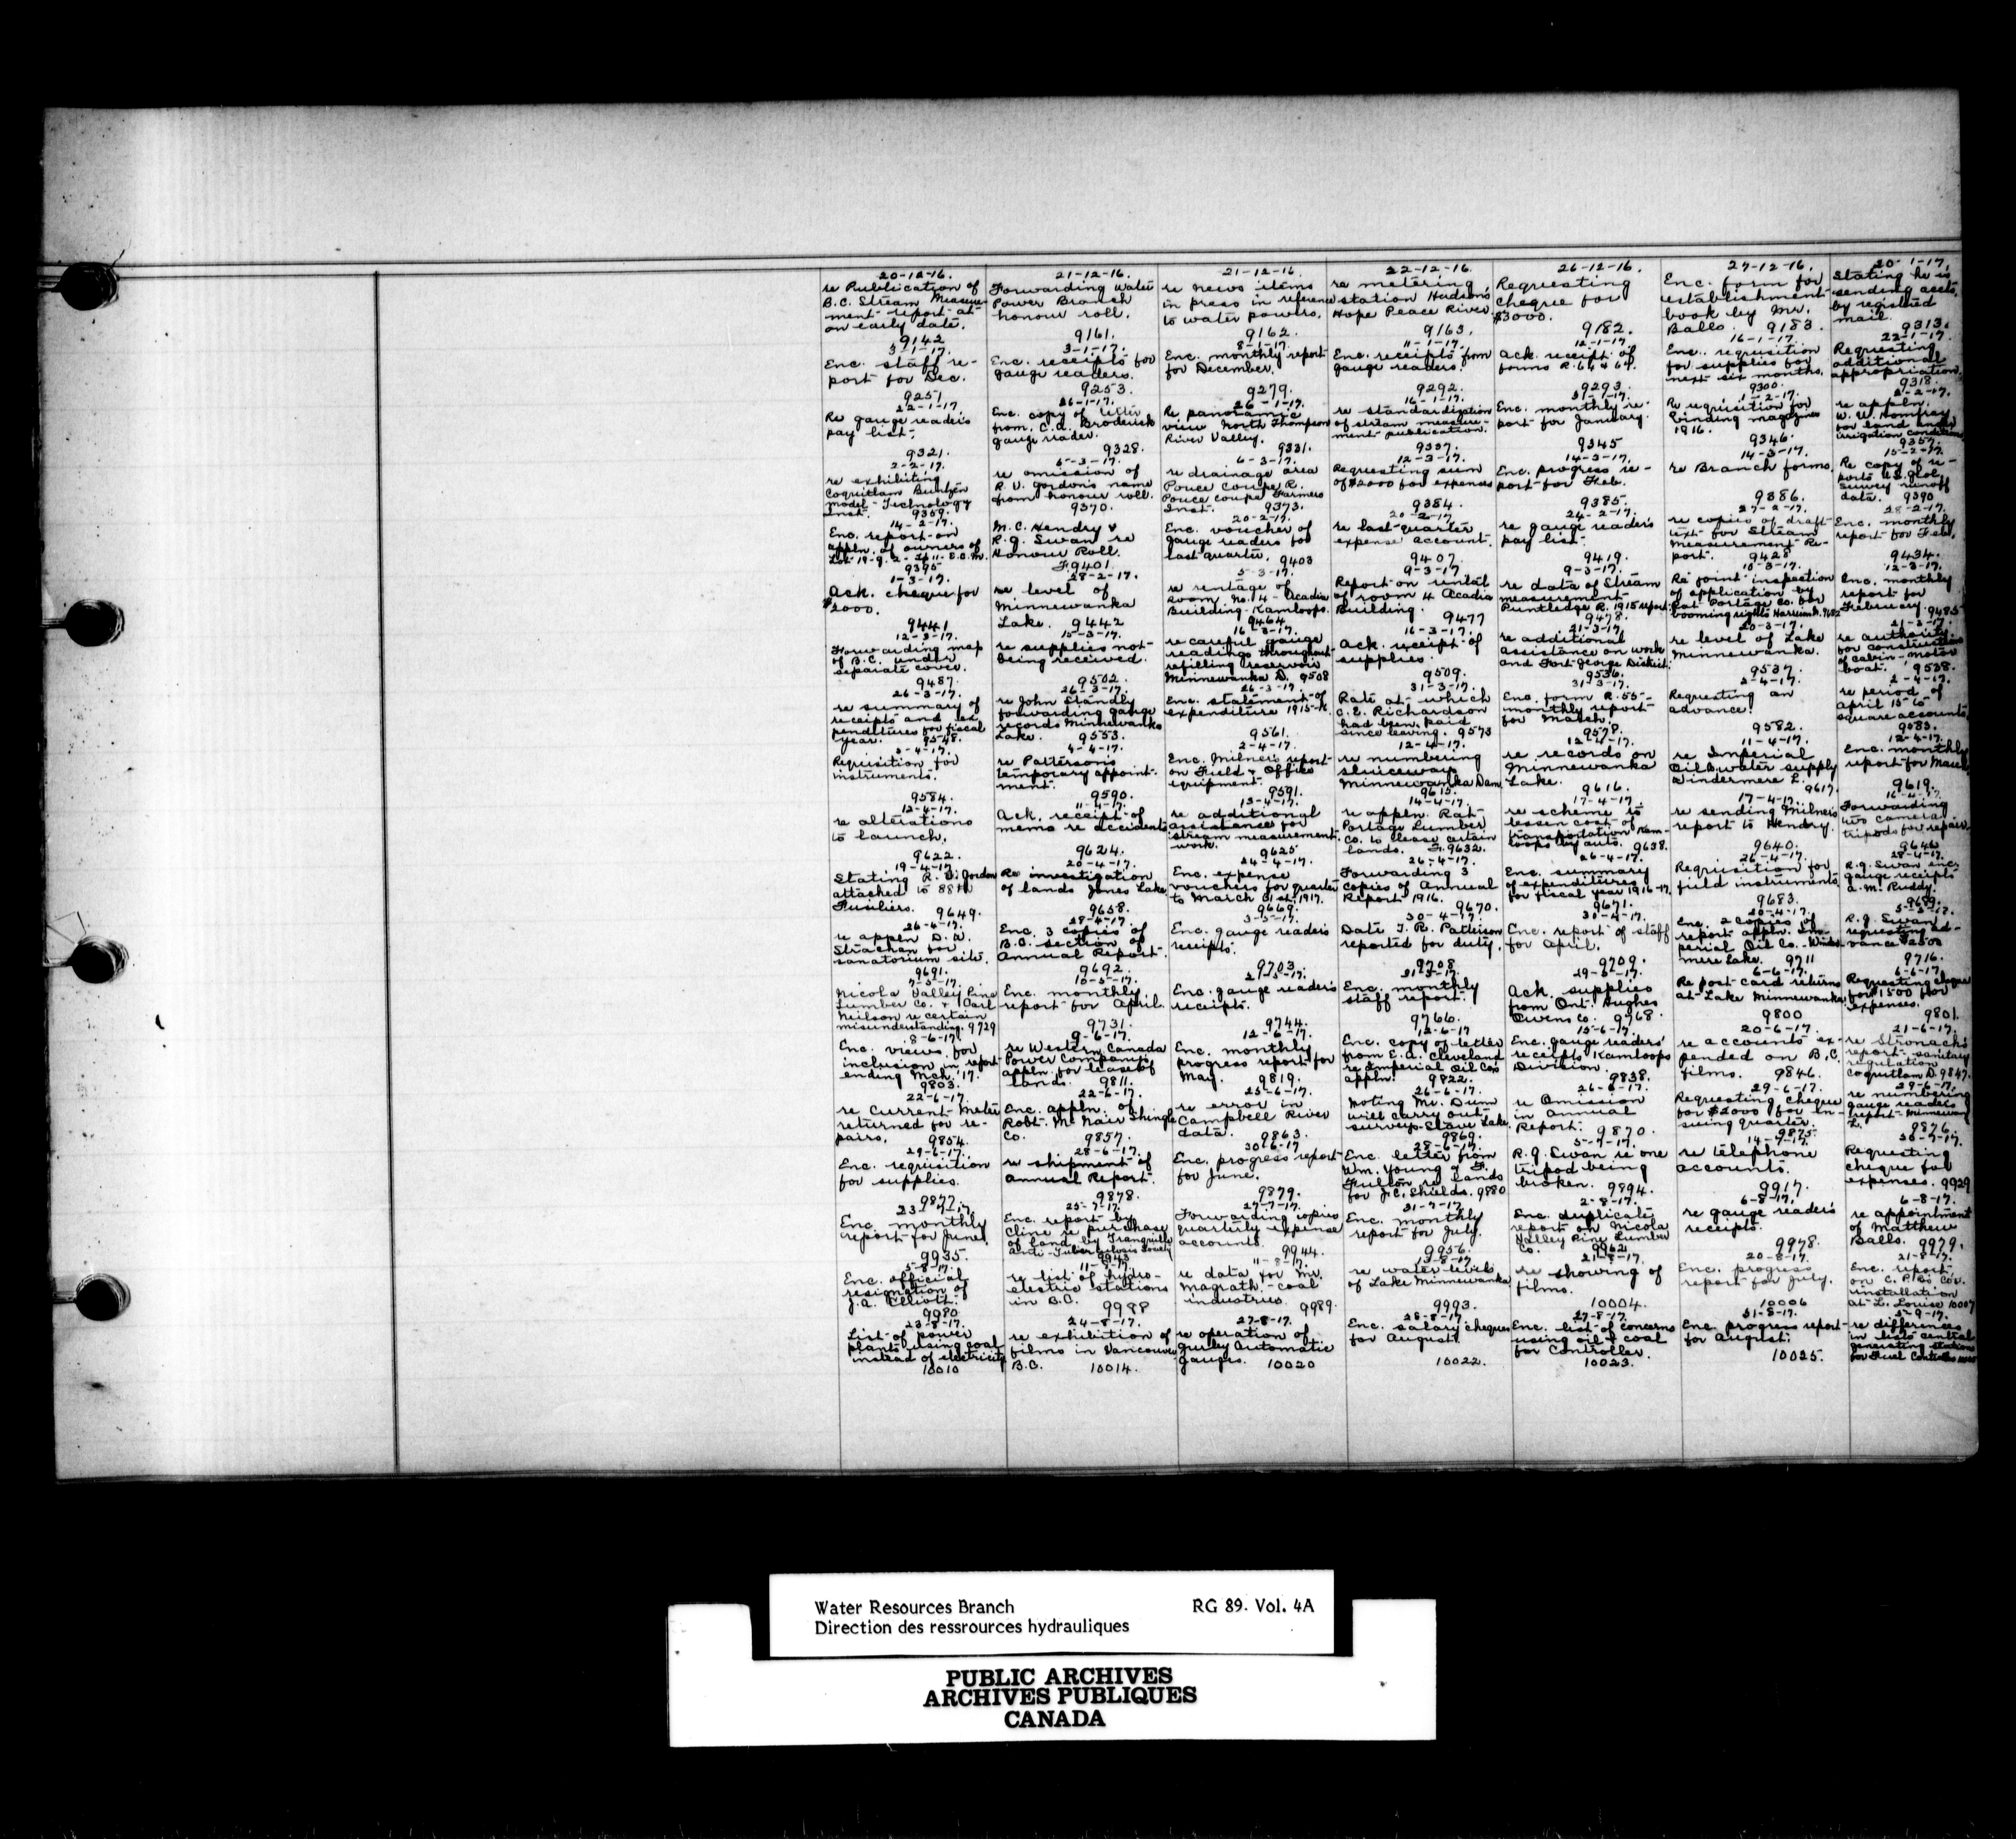 20-12-16.
re Publication of
B.C. Stream Measure-
ment report at
an early date.
9142
21-12-16.
Forwarding Water
Power Branch
honour roll.
9161.
21-12-16
re News items
in press in reference
to water powers.
9162.
22-12-16.
re metering
station Hudson's
Hope Peace River.
9163.
26-12-16.
Requesting
cheque for
$3000.
9182.
27-12-16.
Enc. form for
establishment
book by Mr.
Balls. 9183.
20-1-17.
Stating he is
sending accts.
by registered
mail.
9313.
3-1-17.
Enc. staff re-
port for Dec.
9251
3-1-17.
Enc. receipts for
gauge readers.
9253.
8-1-17.
Enc. monthly report
for December.
9279.
11-1-17.
Enc. receipts from
gauge readers.
9292.
12-1-17
Ack. receipt of
forms R.
9293.
16-1-17.
Enc. requisition
for supplies for
next six months.
9300.
22-1-17.
Requesting
additional
appropriation.
9318.
22-1-17
Re gauge reader's
pay list.
9321.
26-1-17.
Enc. copy of letter
from C.A. Broderick
gauge reader.
9328.
26-1-17.
Re panoramic
view North Thompson
River Valley.
9331.
16-1-17.
re standardization
of stream measure-
ment publication.
9337.
31-1-17.
Enc. monthly re-
port for January.
9345
1-2-17.
Re requisition for
binding magazines
1916.
9346.
2-2-17.
re appln.
W. U. Homfray
for land under
irrigation condition
9357.
2-2-17.
re exhibiting
Coquitlam Buntzen
Model-Technology
Inst. 9359.
5-3-17.
re omission of
R. V. Gordon's name
from honour roll.
9370.
6-3-17.
re drainage area
Pouce Coupe R.
Pouce Coupe Farmers
Inst. 9373.
12-3-17.
Requesting sum
of $2000 for expenses
9384.
14-3-17.
Enc. progress re-
port for Feb.
9385.
14-3-17.
re Branch forms.
9386.
15-2-17.
Re copy of re-
ports U.S. Geol.
Survey runoff
data. 9390
14-2-17.
Enc. report on
appln. of owners of
9395
M.C. Hendry &
R.G. Swan re
Honour Roll.
F.9401.
20-2-17.
Enc. voucher of
gauge readers for
last quarter. 9403
20-2-17
re last quarter
expense account.
9407.
24-2-17.
re gauge reader's
pay list.
9419.
27-2-17.
re copies of draft
text for Stream
Measurement Re-
port. 9428
28-2-17.
Enc. monthly
report for Feb.
9434.
1-3-17.
Ack. cheque for
$2000.
9441
28-2-17.
re level of
Minnewanka
Lake. 9442
5-3-17.
re rentage of
room No. 4 - Acadia
Building-Kamloops.
9464
9-3-17
Report on rental
of room 4 Acadia
Building.
9477
9-3-17.
re data of Stream
measurement
Puntledge R. 1915 report.
9478.
10-3-17.
Re joint inspection
of application by
Rat Portage Co. for
booming rights Harrison R. 9482
12-3-17.
Enc. monthly
report for
February. 9485
12-3-17.
Forwarding map
of B.C. under
separate cover.
9487.
15-3-17.
re supplies not
being received.
9502.
16-3-17.
re careful gauge
readings throughout
refilling reservoir
Minnewanka D. 9508
16-3-17.
Ack. receipt of
supplies.
9509.
21-3-17.
re additional
assistance on work
and Fort George District.
9536.
20-3-17.
re level of Lake
Minnewanka.
9537.
21-3-17.
re authority
for construction
of cabin-motor
boat. 9538.
26-3-17.
re summary of
receipts and ex-
penditures for fiscal
year. 9548.
26-3-17.
re John Standly
forwarding gauge
records Minnewanka
Lake. 9553.
26-3-17.
Enc. statement of
expenditure
9561.
31-3-17.
Rate at which
C.E. Richardson
had been paid
since leaving. 9573
31-3-17.
Enc. form R.55-
monthly report
for March.
9578.
2-4-17.
Requesting an
advance.
9582.
2-4-17.
re period of
April 15 to
square accounts.
9583.
3-4-17.
Requisition for
instruments.
9584.
4-4-17.
re Patterson's
temporary appoint-
ment.
9590.
2-4-17.
Enc. Milner's report
on Field & Office
equipment.
9591.
12-4-17.
re numbering
sluiceways
Minnewanka Dam.
9615.
12-4-17.
re records on
Minnewanka
Lake.
9616.
11-4-17.
re Imperial
Oil & water supply
Windermere L.
9617.
12-4-17.
Enc. monthly
report for March.
9619.
12-4-17.
re alterations
to launch.
9622.
11-4-17.
Ack. receipt of
memo re accidents.
9624.
13-4-17.
re additional
assistance for
stream measurement
work. 9625
14-4-17.
re appln. Rat
Portage Lumber
Co. to lease certain
lands. F.9632.
17-4-17.
re scheme to
lessen cost of
transportation Kam-
loops by auto. 9638.
17-4-17.
re sending Milner's
report to Hendry.
9640.
16-4-17.
Forwarding
two camera
tripods for repair.
9646
19-4-17.
Stating R. V. Gordon
attached to 88th
Fusiliers. 9649.
20-4-17.
Re investigation
of lands Jones Lake.
9658.
24-4-17.
Enc. expense
vouchers for quarter
to March 31st, 1917.
9669.
26-4-17.
Forwarding 3
copies of Annual
Report 1916.
9670.
26-4-17.
Enc. summary
of expenditures
for fiscal year 1916-17.
9671.
26-4-17.
Requisition for
field instruments.
9683.
28-4-17.
R.G. Swan enc.
gauge receipts
A. M. Ruddy.
9689.
26-4-17.
re appln D. W.
Strachan for
sanatorium site.
9691.
28-4-17.
Enc. 3 copies of
B.C. section of
Annual Report.
9692.
3-5-17.
Enc. gauge reader's
receipts.
9703.
30-4-17.
Date T. R. Patterson
reported for duty.
9708
31-4-17.
Enc. report of staff
for April.
9709.
30-4-17.
Enc. 2 copies of
report appln. Im-
perial Oil Co. - Winder-
mere Lake. 9711
5-5-17.
R.G. Swan
requesting ad-
vance $2500
9716.
7-5-17.
Nicola Valley Pine
Lumber Co. & Carl
Neilson re certain
misunderstanding. 9729
10-5-17.
Enc. monthly
report for April.
9731.
21-5-17.
Enc. gauge reader's
receipts.
9744.
31-5-17.
Enc. monthly
staff report.
9766.
29-5-17.
Ack. supplies
from Ont. Hughes
Owens Co. 9768.
6-6-17.
Re post card returns
at Lake Minnewanka.
9800
6-6-17.
Requesting cheque
for $1500 for
expenses.
9801.
8-6-17.
Enc. views for
inclusion in report
ending Mch. '17.
9803.
9-6-17.
re Western Canada
Power Company's
appln. for lease of
lands. 9811.
12-6-17.
Enc. monthly
progress report for
May. 9819.
12-6-17
Enc. copy of letter
from E.A. Cleveland
re Imperial Oil Co's
appln. 9822.
15-6-17.
Enc. gauge readers'
receipts Kamloops
Division.
9838.
20-6-17.
re accounts ex-
pended on B.C.
films. 9846.
21-6-17.
re Stronach's
report-sanitary
regulation
Coquitlam D. 9847.
22-6-17.
re Current Meter
returned for re-
pairs. 9854.
22-6-17.
Enc. appln. of
Robt. McNair Shingle
Co. 9857.
25-6-17.
re error in
Campbell River
data. 9863.
26-6-17.
Noting Mr. Dunn
will carry out
survey-Stave Lake.
9869.
26-6-17.
re Omission
in Annual
Report. 9870.
29-6-17.
Requesting cheque
for $2000 for en-
suing quarter.
9875.
29-6-17.
re numbering
gauge reader's
report-Minnewanka
L. 9876.
29-6-17.
Enc. requisition
for supplies.
9877.
28-6-17.
re shipment of
Annual Report.
9878.
30-6-17
Enc. progress report
for June.
9879.
28-6-17.
Enc. letter from
Wm. Young & F.
Fulton re lands
for J.C. Shields. 9880
5-7-17.
R.G. Swan re one
tripod being
broken. 9894.
14-7-17.
re telephone
accounts.
9917.
30-7-17.
Requesting
cheque for
expenses. 9929
23-7-17.
Enc. monthly
report for June.
9935.
25-7-17.
Enc. report by
Cline re purchase
of land by Tranquille
Anti-Tuberculosis Society
9943
27-7-17.
Forwarding copies
quarterly expense
accounts.
9944.
31-7-17.
Enc. monthly
report for July.
9956.
2-8-17.
Enc. duplicate
report on Nicola
Valley Pine Lumber
Co. 9962
6-8-17.
re gauge reader's
receipts.
9978.
6-8-17.
re appointment
of Matthew
Balls. 9979.
5-8-17.
Enc. official
resignation of
J.A. Elliott.
9980
11-8-17.
re list of hydro-
electric stations
in B.C.
9988
11-8-17.
re data for Mr.
Magrath-coal
industries.
9989.
13-8-17
re water levels
of Lake Minnewanka
9993.
21-8-17.
re showing of
films.
10004.
20-8-17.
Enc. progress
report for July.
10006
21-8-17.
Enc. report
on C.P.R's Cov.
installation
at L. Louise 10007
23-8-17.
List of power
plants using coal
instead of electricity
10010
24-8-17.
re exhibition of
films in Vancouver
B.C. 10014.
27-8-17.
re operation of
Gurley Automatic
gauges. 10020
28-8-17.
Enc. salary cheques
for August.
10022.
27-8-17.
Enc. list of concerns
using oil & coal
for Controller.
10023.
31-8-17.
Enc. progress report
for August.
10025.
5-9-17.
re differences
in lists central
generating stations
for Fuel Controller
Water Resources Branch RG 89. Vol. 4A
Direction des ressrources hydrauliques
PUBLIC ARCHIVES
ARCHIVES PUBLIQUES
CANADA